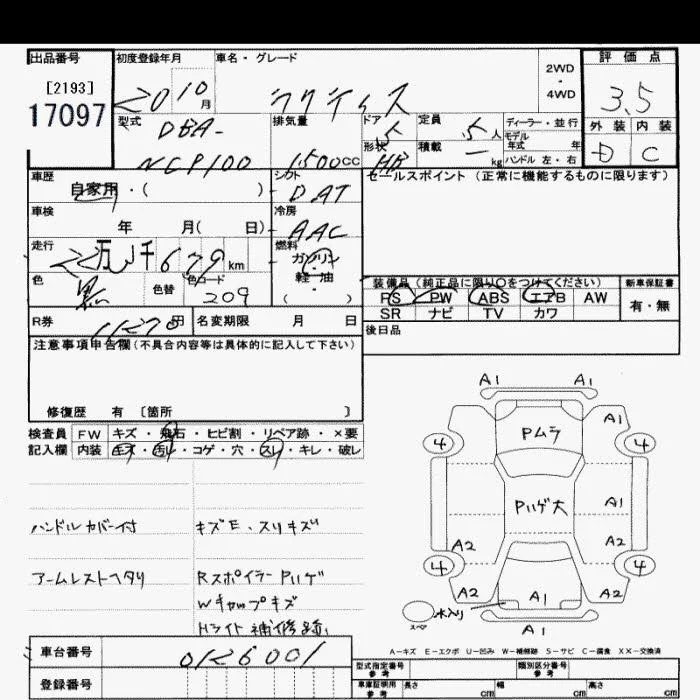 出品番号 初度登録年月 車名・グレード 2WD・4WD 評価点
[2193]
17097
2010 月 ラクティス 3.5
型式 DBA- 排気量 ドア 5 定員 5人 ディーラー・並行 外装 内装
モデル年式 年
NCP100 1500cc 形状 HB 積載 — kg ハンドル 左・右 D C
車歴 自家用・( ) シフト DAT セールスポイント (正常に機能するものに限ります)
車検 年 月( 日) 冷房 AAC
走行 万 千679km 燃料 ガソリン・軽油
色 色替 色コード 209 ( )
装備品 (純正品に限り○をつけてください) 新車保証書
PS PW ABS エアB AW 有・無
SR ナビ TV カワ
R券 円 名変期限 月 日 後日品
注意事項申告欄(不具合内容等は具体的に記入して下さい)
修復歴 有 〔箇所 〕
検査員 FW キズ・飛石・ヒビ割・リペア跡・×要
記入欄 内装 キズ・汚レ・コゲ・穴・スレ・キレ・破レ
ハンドルカバー付 キズE、スリキズ
アームレストヘタリ RスポイラーPハゲ
Wキャップキズ
Hライト補修跡
A1 A1
4 Pムラ A1 4
Pハゲ大 A1
A2 A2
4 4
A2 A1 A2
スペア 水入り
A1
A-キズ E-エクボ U-凹み W-補修跡 S-サビ C-腐食 XX-交換済
車台番号 0126001
登録番号
型式指定番号 参考 類別区分番号 参考
車庫証明用 参考 長さ cm 幅 cm 高さ cm